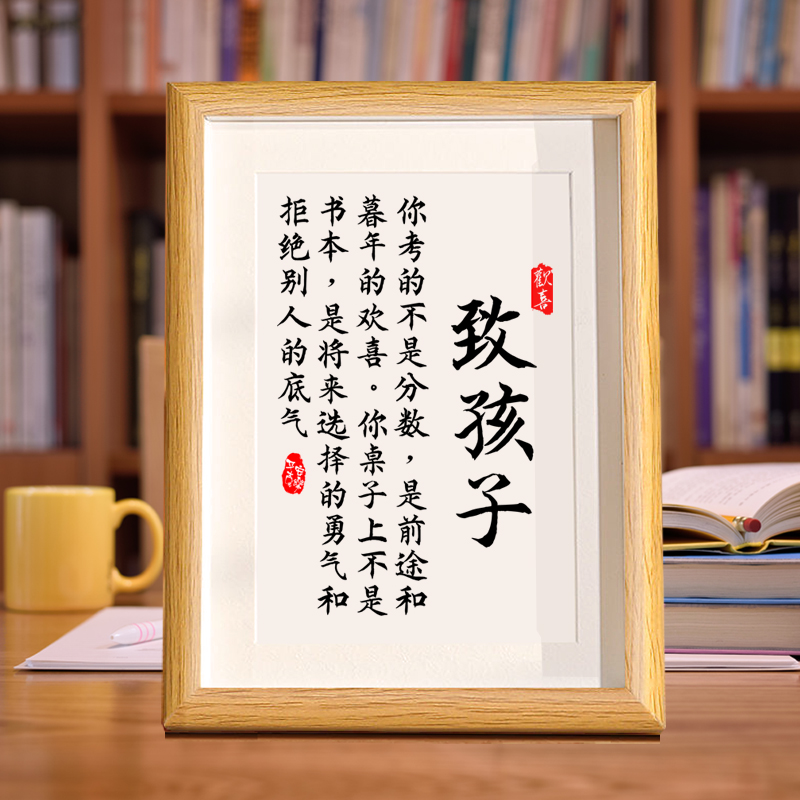 歡喜
致孩子
你考的不是分数，是前途和
暮年的欢喜。你桌子上不是
书本，是将来选择的勇气和
拒绝别人的底气